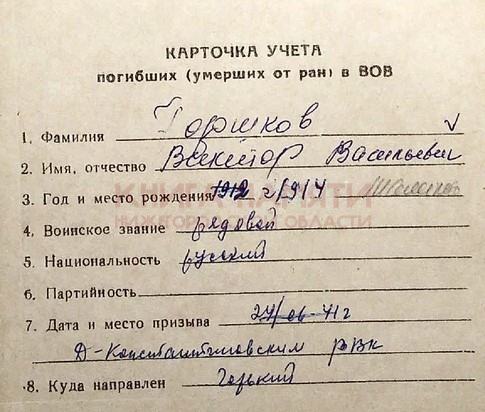 КАРТОЧКА УЧЕТА
погибших (умерших от ран) в ВОВ
1. Фамилия Горшков
2. Имя, отчество Виктор Васильевич
3. Год и место рождения 1912 г 1914
КНИГА ПАМЯТИ
НИЖЕГОРОДСКОЙ ОБЛАСТИ
4. Воинское звание рядовой
5. Национальность русский
6. Партийность
7. Дата и место призыва 27/06-41г
Д-Константиновским РВК
8. Куда направлен Горький